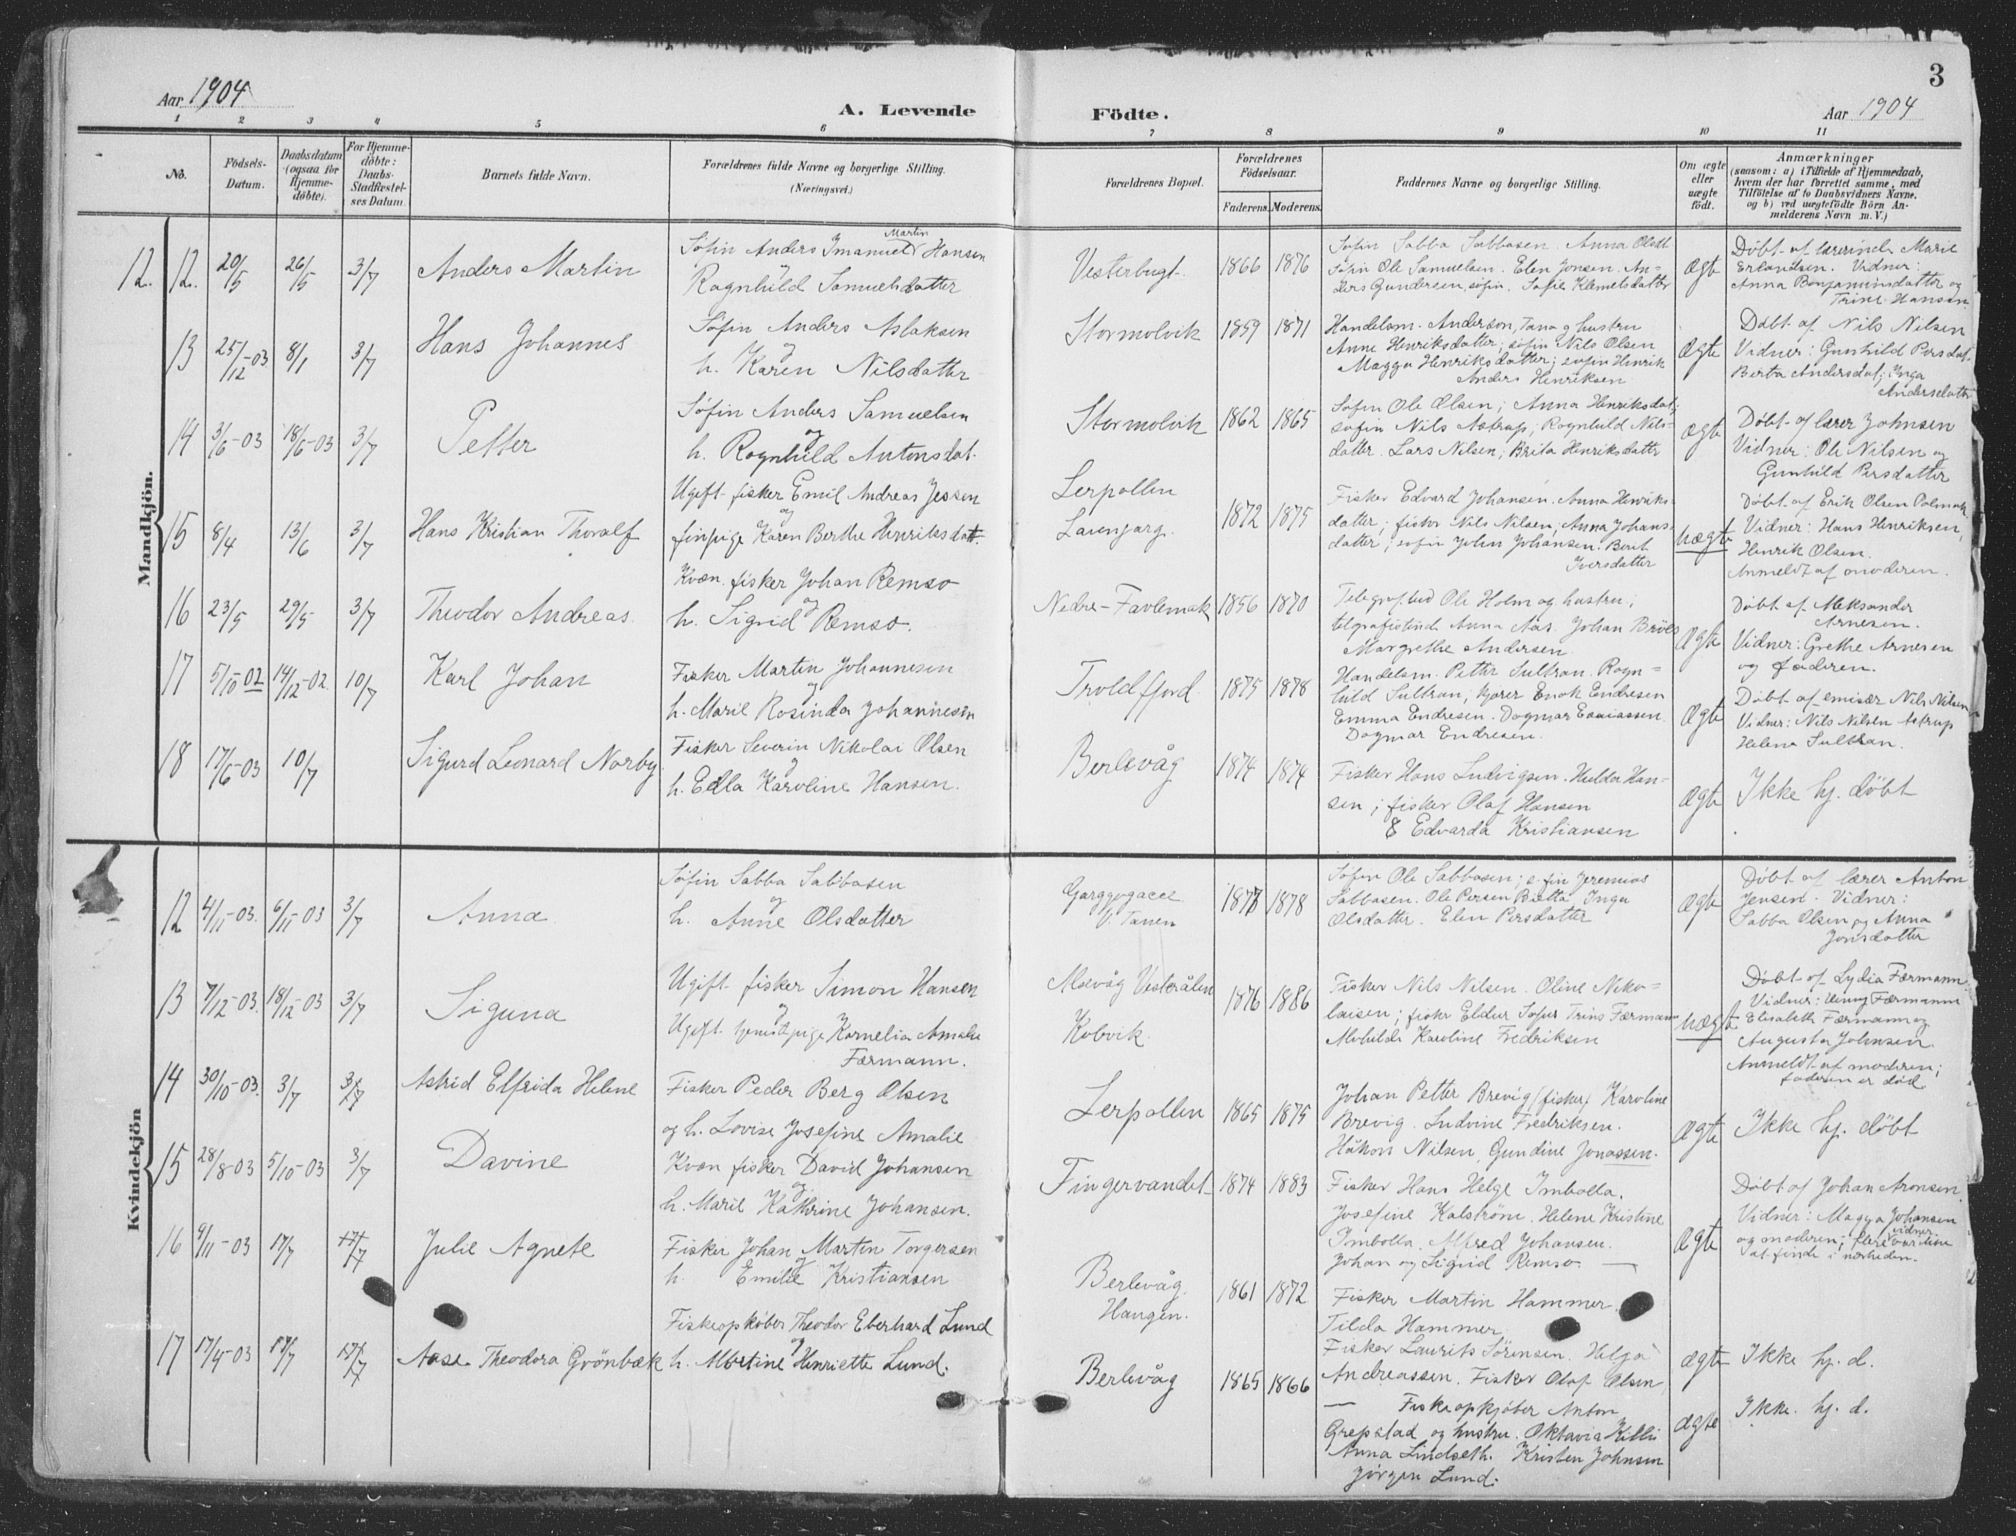 3
Aar 1904
A. Levende Födte.
Aar 1904
1 2 3 4 5 6 7 8 9 10 11
No.
Födsels-
Datum.
Daabsdatum
(ogsaa for
Hjemme-
döbte).
For Hjemme-
döbte:
Daabs-
Stadfæstel-
ses Datum.
Barnets fulde Navn.
Forældrenes fulde Navne og borgerlige Stilling.
(Næringsvei.)
Forældrenes Bopæl.
Forældrenes
Födselsaar.
Faderens. Moderens.
Faddernes Navne og borgerlige Stilling.
Om ægte
eller
uægte
födt.
Anmærkninger
(saasom: a) i Tilfælde af Hjemmedaab,
hvem der har forrettet samme, med
Tilföielse af to Daabsvidners Navne,
og b) ved uægtefödte Börn An-
melderens Navn m. V.)
Mandkjön.
12. 12. 20/5 26/5 3/7 Anders Martin
Søfin Anders Imanuel Martin Hansen
og
Ragnhild Samuelsdatter
Vesterbugt. 1866 1876
Søfin Sabba Sabbasen. Anna Olsdt
Søfin Ole Samuelsen. Elen Jonsen. An-
ders Gundersen, søfin. Sofie Klemetsdatter
Ægte
Døbt af lærerinde Marie
Erlandsen. Vidner:
Anna Benjaminsdatter og
Trine Hansen
13 25/12-03 8/1 3/7 Hans Johannes
Søfin Anders Aslaksen
og
h. Karen Nilsdatter
Stormolvik 1859 1871
Handelsm. Anderson, Tana og hustru
Anne Henriksdatter; søfin Nils Olsen
Magga Henriksdatter; søfin Henrik
Anders Henriksen
Ægte
Døbt af Nils Nilsen
Vidner: Gunhild Persdat.
Berta Andersdat; Inga
Andersdatt.
14 3/6-03 18/6-03 3/7 Petter
Søfin Anders Samuelsen
og
h. Ragnhild Antonsdat.
Stormolvik 1862 1865
Søfin Ole Olsen; Anna Henriksdat;
søfin Nils Astrup; Ragnhild Nils-
datter. Lars Nilsen; Brita Henriksdatter
Ægte
Døbt af lærer Johnsen
Vidner: Ole Nilsen og
Gunhild Persdatter
15 8/4 13/6 3/7 Hans Kristian Thoralf
Ugift fisker Emil Andreas Jessen
og
finpige Karen Berthe Henriksdatt.
Lerpollen
Laenjarg. 1872 1875
Fisker Edvard Johansen. Anna Henriks-
datter; fisker Nils Nilsen; Anna Johans-
datter; søfin John Johansen. Berit
Iversdatter
Uægte
Døbt af Erik Olsen Polmak
Vidner: Hans Henriksen,
Henrik Olsen.
Anmeldt af moderen.
16 23/5 29/5 3/7 Theodor Andreas
Kvæn. fisker Johan Remso
og
h. Sigrid Remso.
Nedre-Favlemak 1856 1870
Telegrafbud Ole Holm og hustru;
telgrafistinde Anna Aas. Johan Bröes
Margrethe Andersen
Ægte
Døbt af Aleksander
Arnesen.
Vidner: Grethe Arnesen
og faderen.
17 5/10-02 14/12-02. 10/7 Karl Johan
Fisker Martin Johannesen
og
h. Marie Rosinda Johannesen
Troldfjord. 1875 1878
Handelsm. Petter Sultran. Ragn-
hild Sultran; lærer Enok Endresen
Emma Endresen. Dagmar Esaiassen
Dagmar Endresen.
Ægte
Døbt af emisær Nils Nilsen
Vidner: Nils Nilsen Astrup
Helena Sultran.
18 17/6-03 10/7 Sigurd Leonard Norby
Fisker Severin Nikolai Olsen
og
h. Edla Karoline Hansen.
Berlevåg 1874 1874
Fisker Hans Ludvigsen. Hulda Han-
sen; fisker Olaf Hansen
& Edvarda Kristiansen
Ægte
Ikke hj. döbt
Kvindekjön
12 4/11-03. 6/11-03 3/7 Anna
Søfin Sabba Sabbasen
og
h. Anne Olsdatter
Garggogæcce
V. Tanen 1878 1878
Søfin Ole Sabbasen; søfin Jeremias
Sabbasen. Ole Persen Bietta Inga
Olsdatter. Elen Persdatter
Ægte
Døbt af lærer Anton
Jensen. Vidner:
Sabba Olsen og Anna
Jonsdatter
13 7/12-03. 18/12-03 3/7 Siguna
Ugift fisker Simon Hansen
og
Ugift tjenestpige Kornelia Amalie
Færmann.
Malvåg Vesterålen
Kobvik. 1876 1886
Fisker Nils Nilsen. Oline Niko-
laisen; fisker Eldur Sofus Trins Færmann
Alvhilde Karoline Fredriksen
Uægte
Døbt af Lydia Færmann.
Vidner: Jenny Færmann
Elisabeth Færmann og
Augusta Johnsen.
Anmeldt af moderen;
faderen er död.
14 30/10-03. 3/7 3/7 Astrid Elfrida Helene
Fisker Peder Berg Olsen
og h. Lovise Josefine Amalie
Lerpollen 1865 1875
Johan Petter Brevig (fisker) Karoline
Brevig. Ludvine Fredriksen.
Håkon Nilsen, Gundine Jonassen.
Ægte
Ikke hj. döbt
15 28/8-03 5/10-03 3/7 Davine
Kvæn fisker David Johansen
og
h. Marie Kathrine Johansen.
Fingervandet 1874 1883
Fisker Hans Helge Imbolla.
Josefine Kalström. Helene Kristine
Imbolla. Alfred Johansen.
Johan og Sigrid Remso. —
Ægte
Døbt af Johan Aronsen.
Vidner: Magga Johansen
og moderen; flere vidner var ikke
at finde i nærheden.
16 9/11-03 17/7 17/7 Julie Agnete
Fisker Johan Martin Torgersen
og
h. Emilie Kristiansen
Berlevåg.
Haugen. 1861 1872
Fisker Martin Hammer.
Tilda Hammer
Fisker Laurits Sörensen. Helga
Andreassen. Fisker Olaf Olsen
Ægte
Ikke hj. d.
17 17/4-03 17/7 17/7 Aase Theodora Grönbæk
Fiskeopkøber Theodor Eberhard Lund
og
h. Albertine Henriette Lund.
Berlevåg 1865 1866
— Fiskeopkjøber Anton
Grepstad og hustru. Oktavia Killi
Anna Lindseth. Kristen Johnsen
Jörgen Lund.
Ægte
Ikke. hj. d.